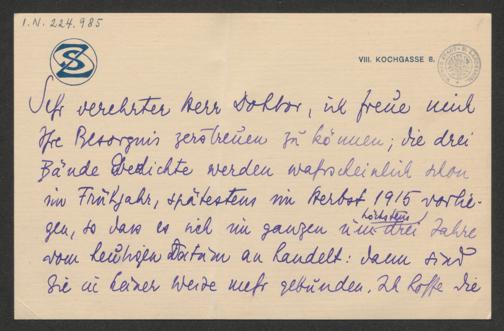 I.N. 224.985
SZ
VIII. KOCHGASSE 8.
Sehr verehrter Herr Doktor, ich freue mich
Ihre Besorgnis zerstreuen zu können; die drei
Bände Gedichte werden wahrscheinlich schon
im Frühjahr, spätestens im Herbst 1915 vorlie-
gen, so dass es sich im ganzen um drei Jahre
höchstens
vom heutigen Datum an handelt: dann sind
Sie in keiner Weise mehr gebunden. Ich hoffe die